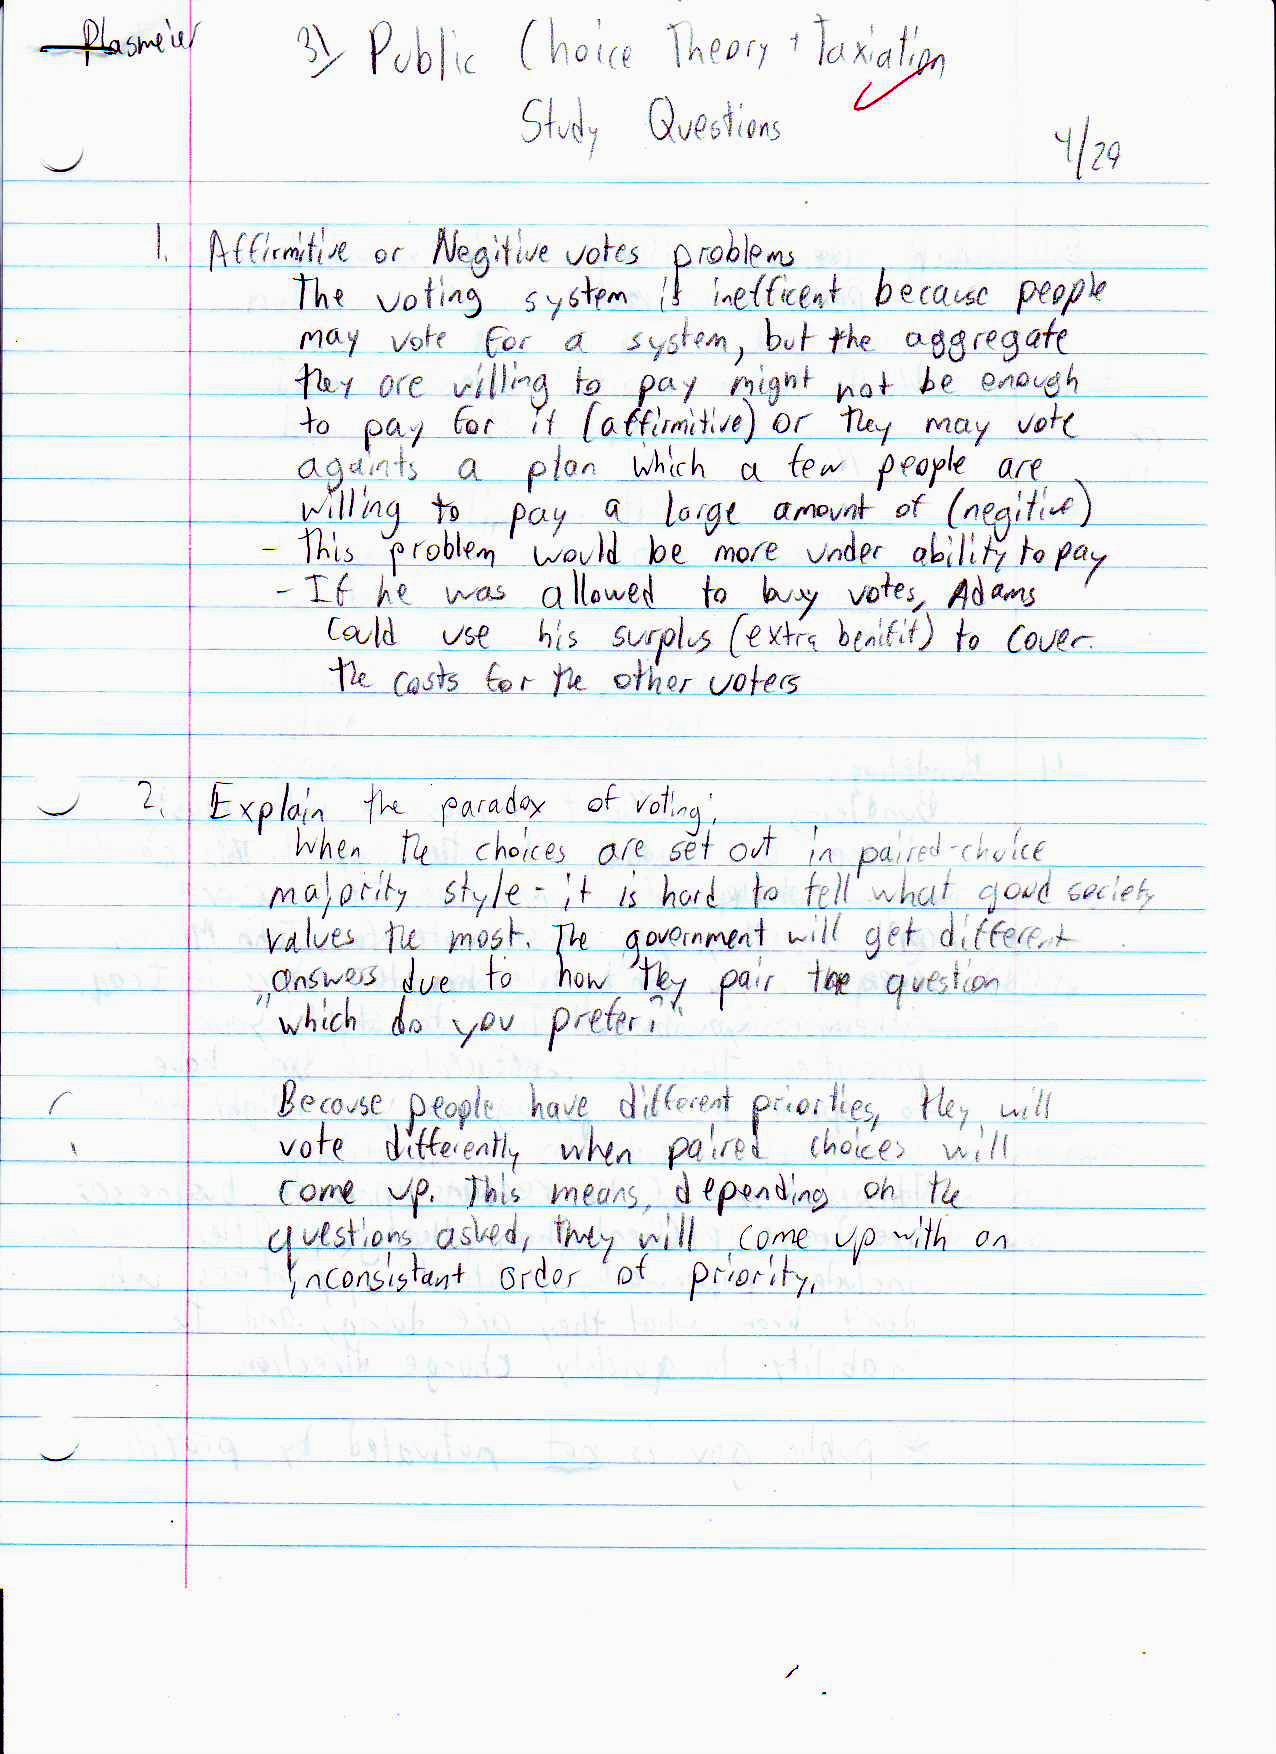 Plasmeier
3) Public Choice Theory + Taxiation
Study Questions
4/29
1. Affirmitive or Negitive votes problems
The voting system is inefficent because people
may vote for a system, but the aggregate
they are willing to pay might not be enough
to pay for it (affirmitive) or they may vote
againts a plan which a few people are
willing to pay a large amount of (negitive)
- This problem would be more under ability to pay
- If he was allowed to buy votes, Adams
could use his surplus (extra benifit) to cover
the costs for the other voters
2. Explain the paradox of voting;
When the choices are set out in paired-choice
majority style - it is hard to tell what good society
values the most. The government will get different
answers due to how they pair the question
"which do you prefer?"
Because people have different priorties, they will
vote differently when paired choices will
come up. This means, depending on the
questions asked, they will come up with an
inconsistant order of priority.